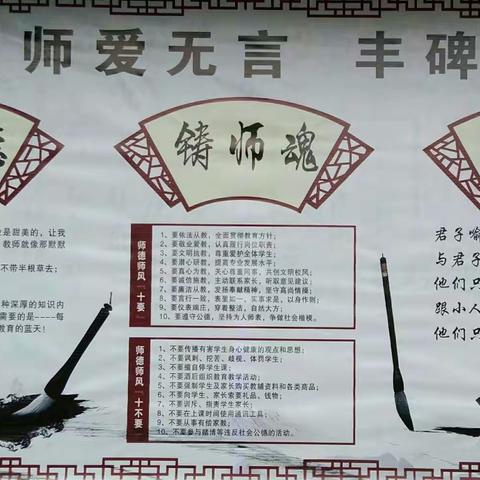 师爱无言 丰碑
铸师魂
是甜美的，让我
教师就像那默默
不带半根草去；
种深厚的知识内
需要的是----每
教育的蓝天！
师德师风『十要』
1、要依法从教，全面贯彻教育方针；
2、要敬业爱教，认真履行岗位职责；
3、要文明执教，尊重爱护全体学生；
4、要潜心研教，提高专业发展水平；
5、要真心为教，关心尊重同事，共创文明校风；
6、要诚信施教，主动联系家长，听取意见建议；
7、要廉洁从教，发扬奉献精神，坚守高尚情操；
8、要言行一致，表里如一，实事求是，以身作则；
9、要仪表端庄，穿着整洁，自然大方；
10、要遵守公德，坚持为人师表，争做社会楷模。
师德师风『十不要』
1、不要传播有害学生身心健康的观点和思想；
2、不要讽刺、挖苦、歧视、体罚学生；
3、不要擅自停学生课；
4、不要酒后组织教育教学活动；
5、不要强制学生及家长购买教辅资料和各类商品；
6、不要向学生、家长索要礼品、钱物；
7、不要训斥、指责学生家长；
8、不要在上课时间使用通讯工具；
9、不要从事有偿家教；
10、不要参与赌博等违反社会公德的活动。
君子喻
与君子
他们只
跟小人
他们只